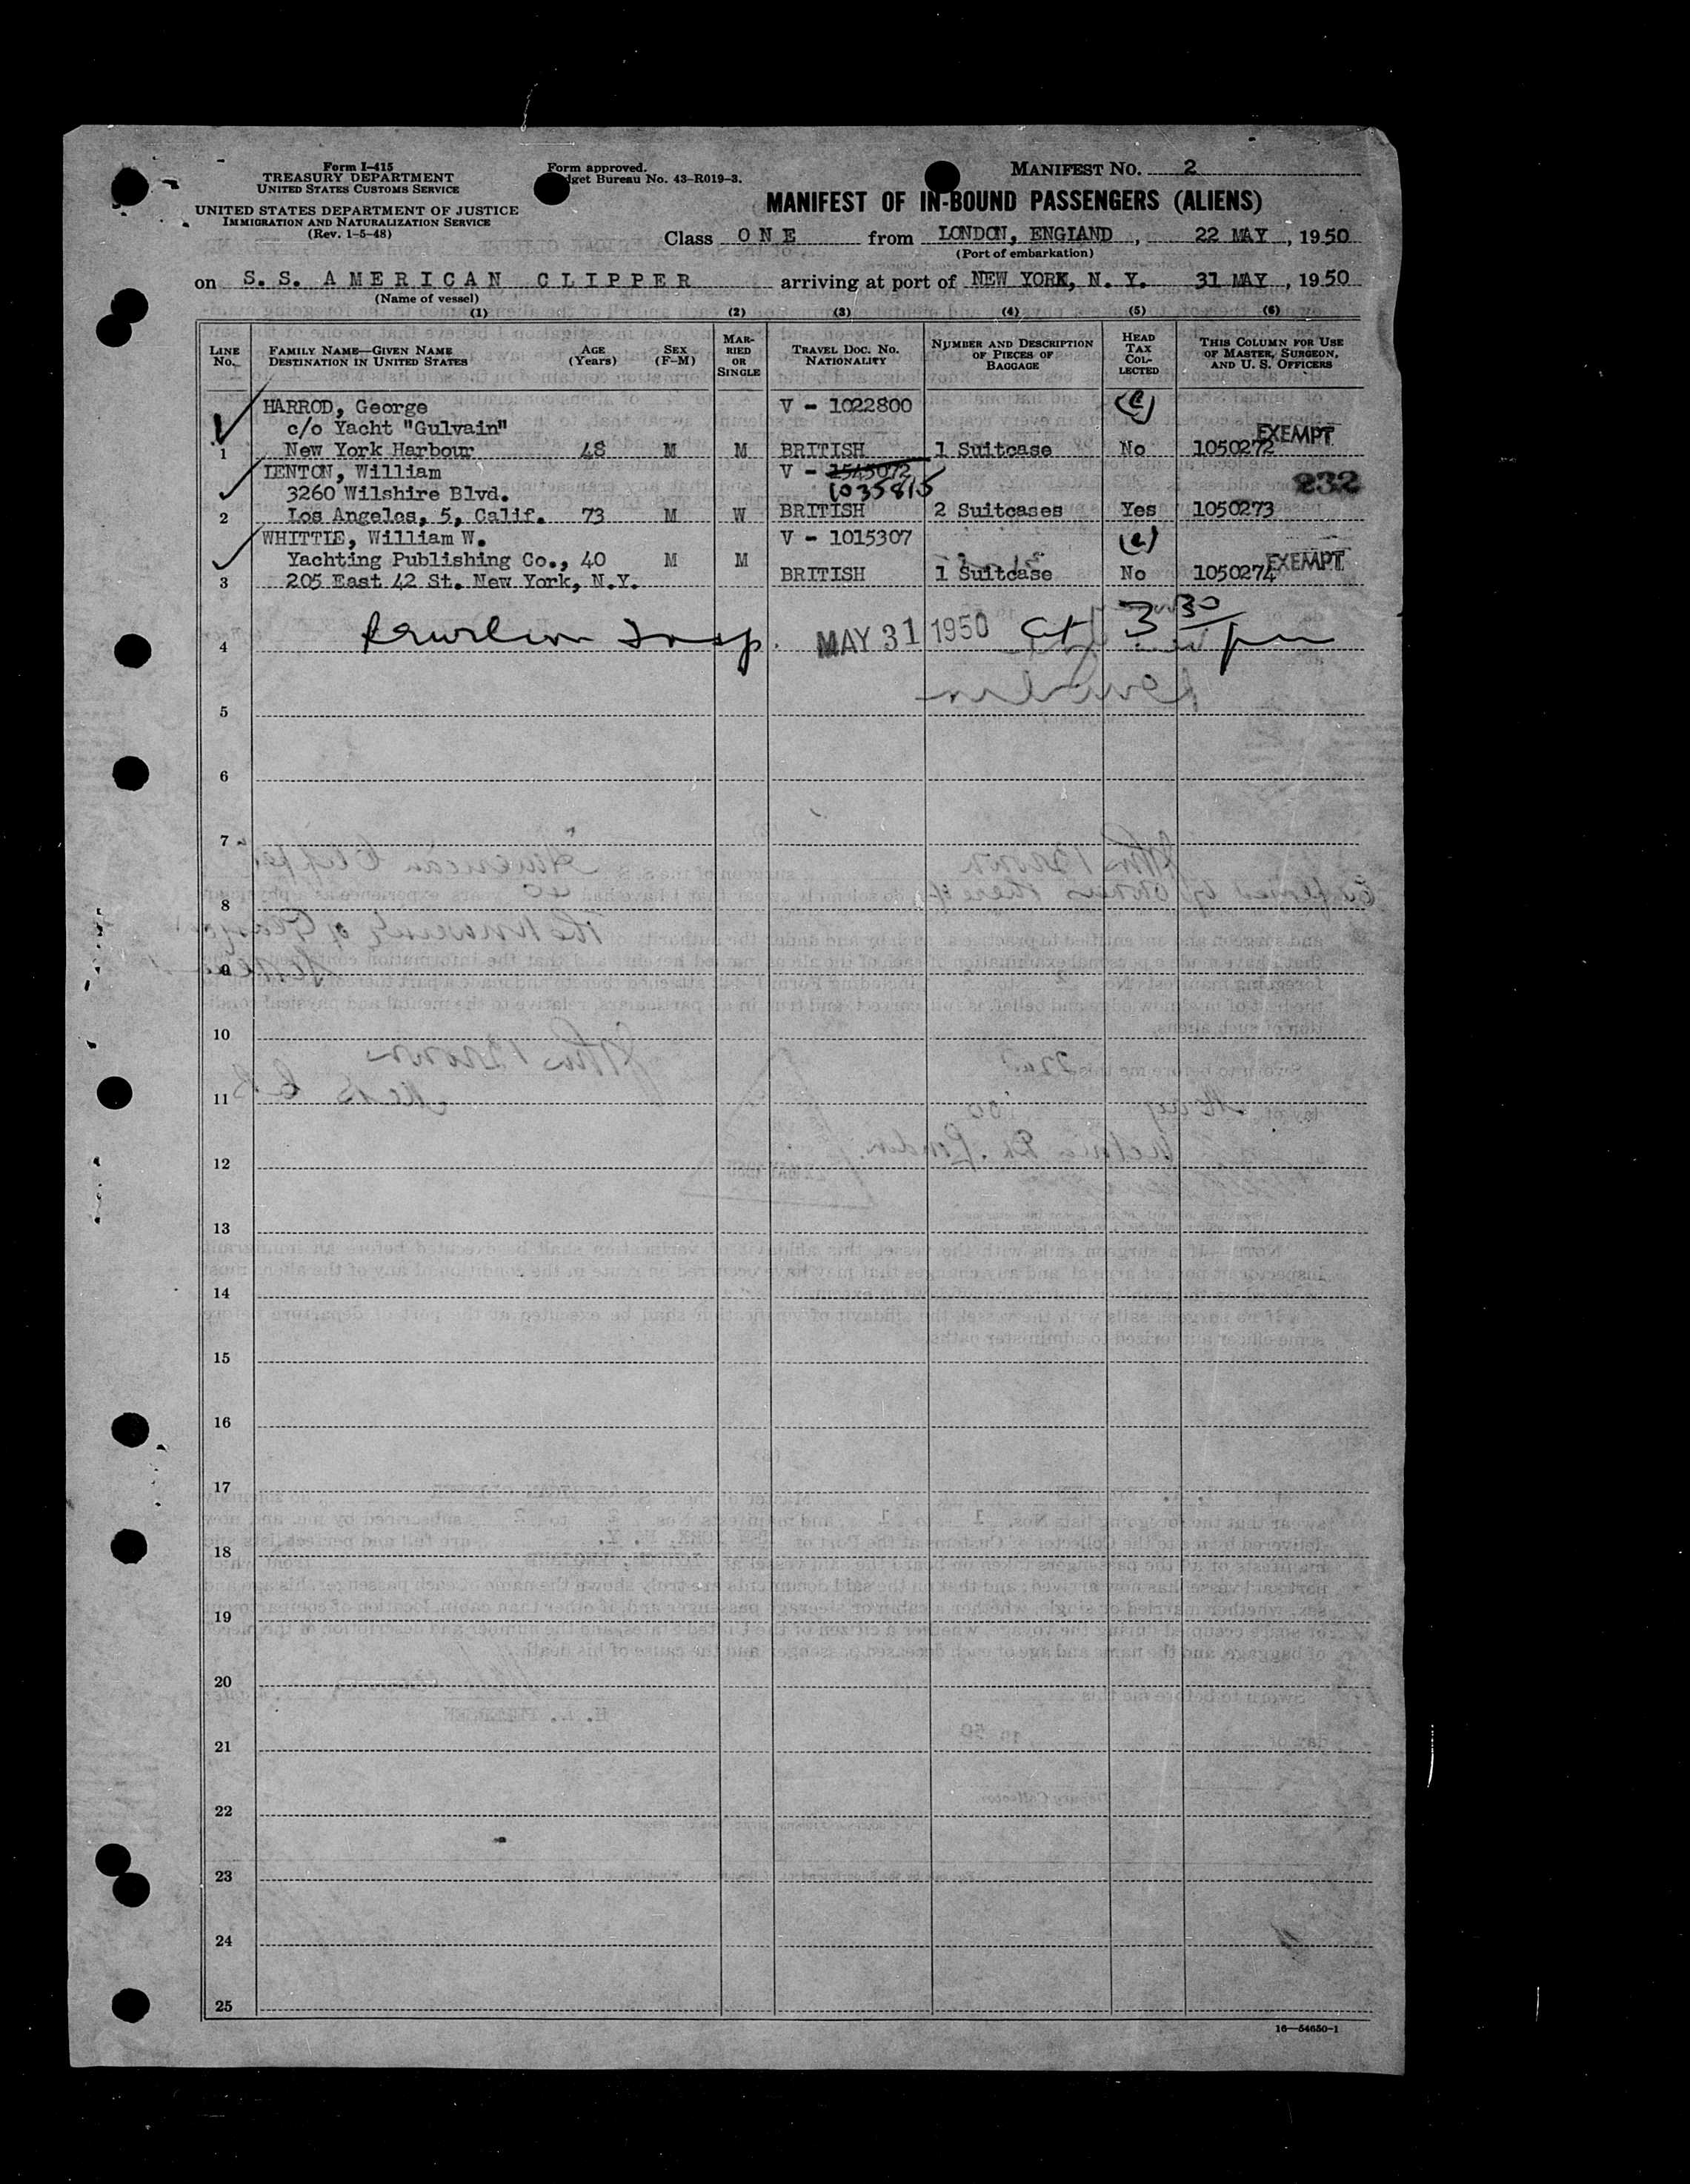 Form I-415
TREASURY DEPARTMENT
UNITED STATES CUSTOMS SERVICE
UNITED STATES DEPARTMENT OF JUSTICE
IMMIGRATION AND NATURALIZATION SERVICE
(Rev. 1-5-48)
Form approved.
Budget Bureau No. 43-R019-3.
MANIFEST NO. 2
MANIFEST OF IN-BOUND PASSENGERS (ALIENS)
Class O N E from LONDON, ENGLAND, 22 MAY, 1950
(Port of embarkation)
on S. S. A M E R I C A N C L I P P E R arriving at port of NEW YORK, N. Y. 31 MAY, 1950
(Name of vessel)
(1) (2) (3) (4) (5) (6)
LINE No. FAMILY NAME—GIVEN NAME DESTINATION IN UNITED STATES AGE (Years) SEX (F-M) MARRIED OR SINGLE TRAVEL DOC. NO. NATIONALITY NUMBER AND DESCRIPTION OF PIECES OF BAGGAGE HEAD TAX COLLECTED THIS COLUMN FOR USE OF MASTER, SURGEON, AND U. S. OFFICERS
HARROD, George V - 1022800
c/o Yacht "Gulvain" EXEMPT
1 New York Harbour 48 M M BRITISH 1 Suitcase No 1050272
LENTON, William V - 1545072
3260 Wilshire Blvd. 1035815 232
2 Los Angeles, 5, Calif. 73 M W BRITISH 2 Suitcases Yes 1050273
WHITTIE, William W. V - 1015307
Yachting Publishing Co., 40 M M EXEMPT
3 205 East 42 St. New York, N.Y. BRITISH 1 Suitcase No 1050274
4 Insp. MAY 31 1950 at 3 30 pm
5
6
7
8
9
10
11
12
13
14
15
16
17
18
19
20
21
22
23
24
25
16—54650-1